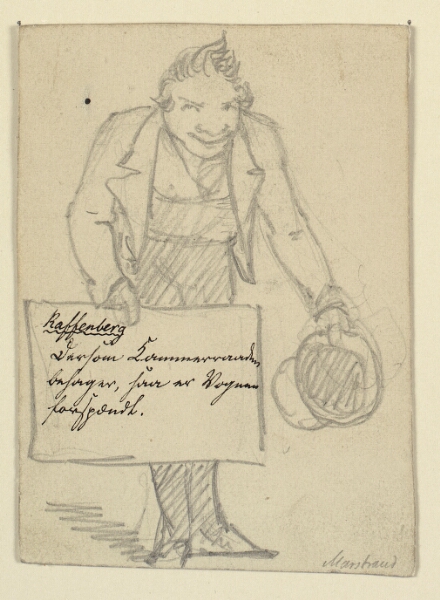 Raffenberg
Dersom Cammerraaden
behager, saa er Vognen
forspændt.
Marstrand